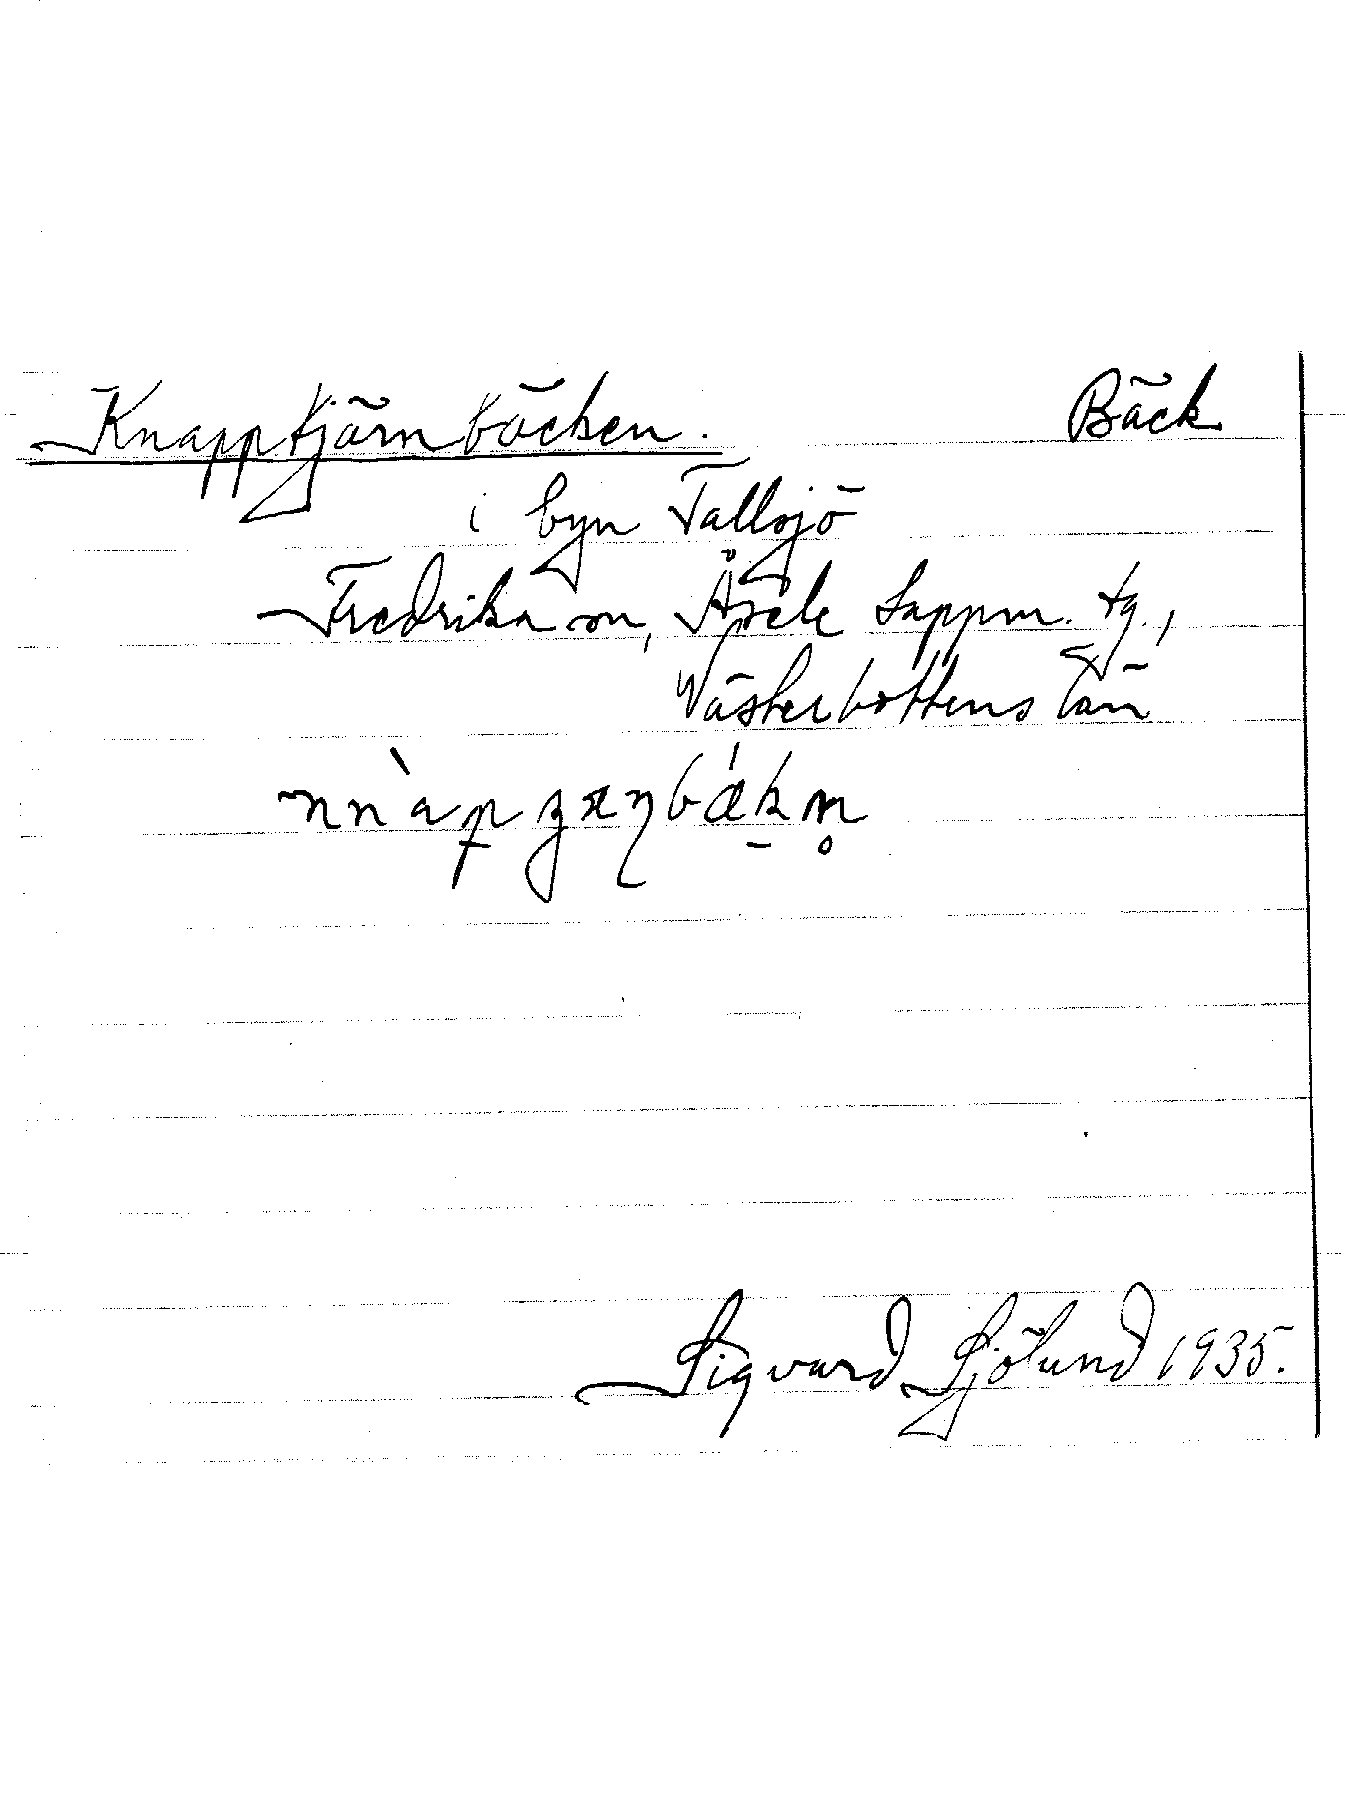 Knapptjärnbäcken. Bäck
i byn Tallsjö
Fredrika sn, Åsele Lappm. tg.,
Västerbottens län
Sigvard Sjölund 1935.